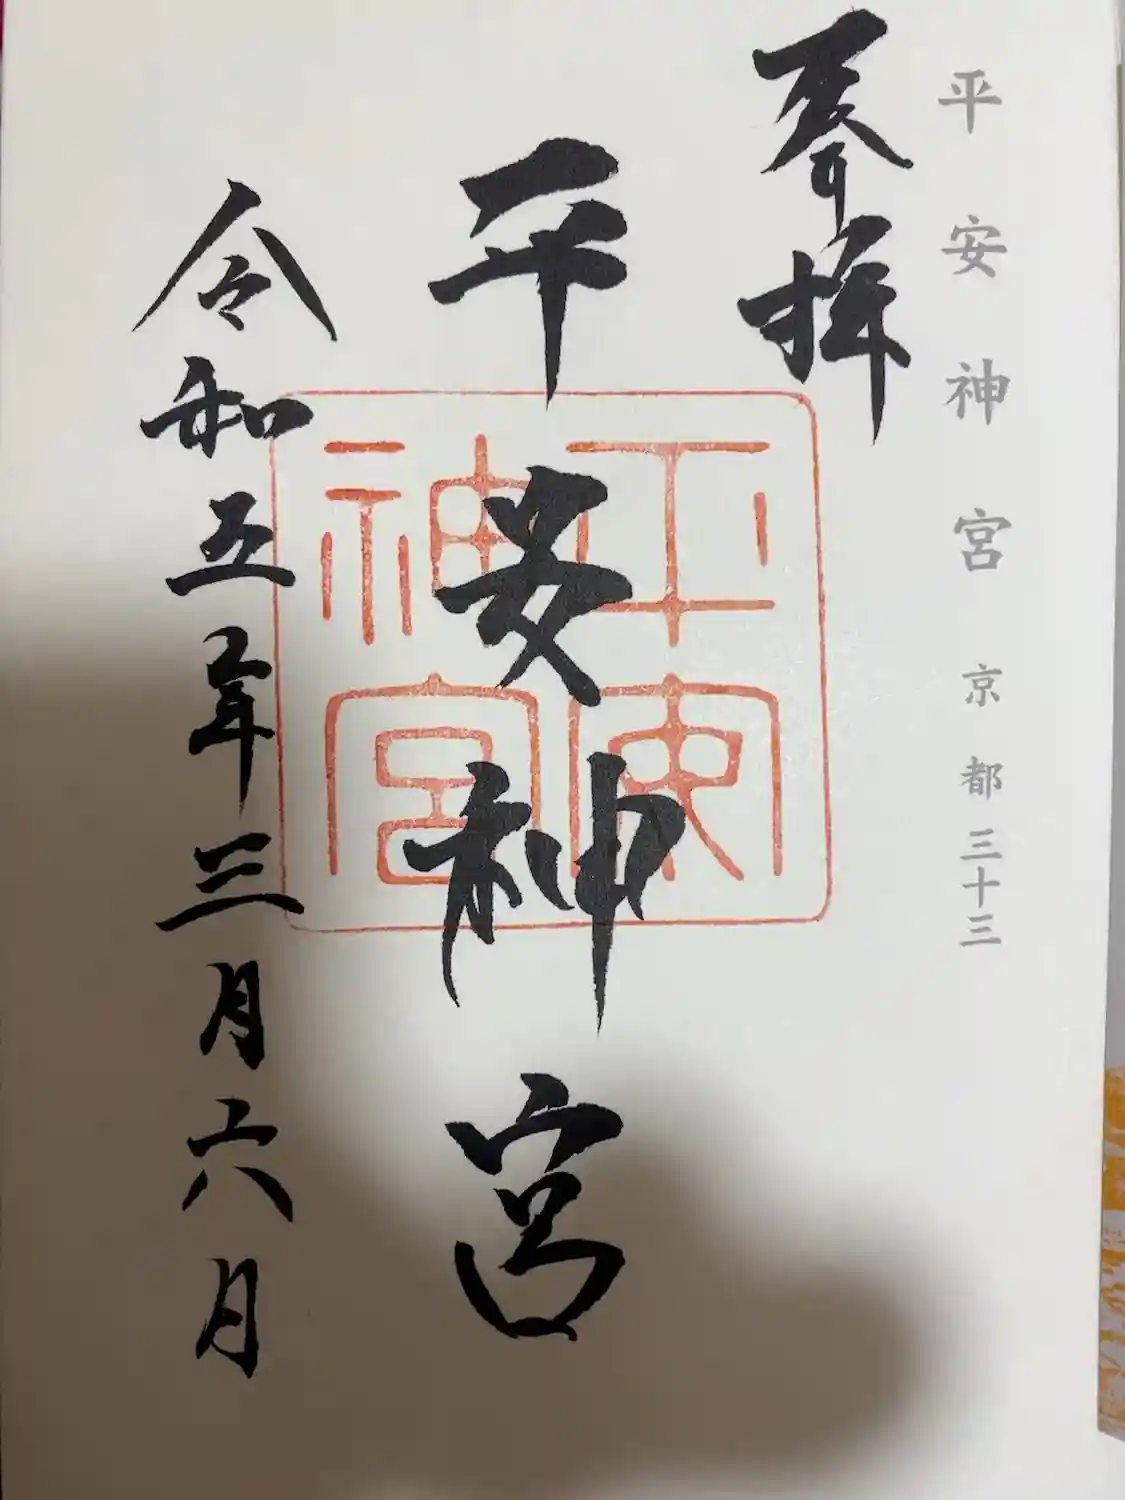 平安神宮 京都 三十三
奉拝
平安神宮
平安
神宮
令和五年三月六月